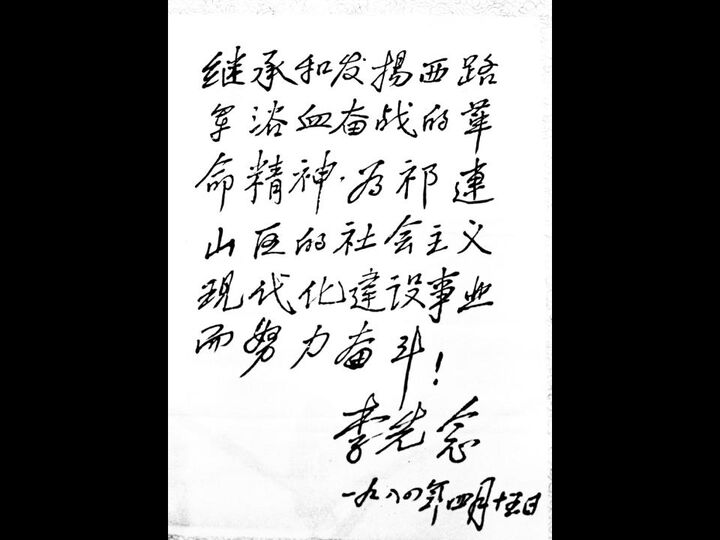 继承和发揚西路
军浴血奋战的革
命精神·为祁連
山区的社会主义
现代化建设事业
而努力奋斗！
李先念
一九八四年四月十五日